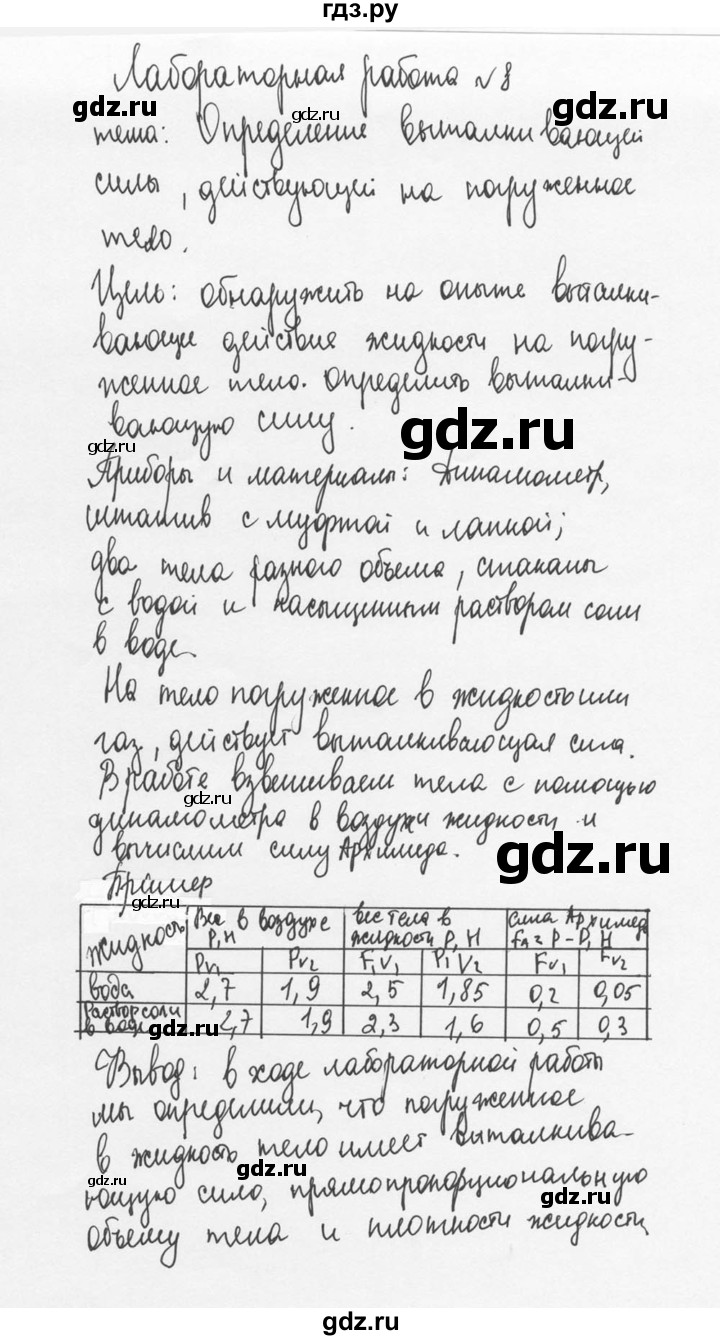 гдз.ру
Лабораторная работа №8
тема: Определение выталкивающей
силы, действующей на погруженное
тело.
Цель: обнаружить на опыте выталки-
вающие действия жидкости на погру-
женное тело. Определить выталки-
вающую силу.
Приборы и материалы: динамометр,
штатив с муфтой и лапкой;
два тела разного объема, стаканы
с водой и насыщенным раствором соли
в воде.
На тело погруженное в жидкость или
газ, действует выталкивающая сила.
В работе взвешиваем тела с помощью
динамометра в воздухи жидкости и
вычислим силу Архимеда.
Пример
жидкость | Вес в воздухе P, Н | вес тела в жидкости P, Н | сила Архимеда FA = P - P, Н
Pv1 | Pv2 | F1V1 | P1V2 | Fv1 | Fv2
вода | 2,7 | 1,9 | 2,5 | 1,85 | 0,2 | 0,05
Раствор соли в воде | 2,7 | 1,9 | 2,3 | 1,6 | 0,5 | 0,3
Вывод: в ходе лабораторной работы
мы определили, что погруженное
в жидкость тело имеет выталкива-
ющую сило, прямопропорциональную
объему тела и плотности жидкости
gdz.ru
gdz.ru
gdz.ru
gdz.ru
gdz.ru
gdz.ru
gdz.ru
gdz.ru
gdz.ru
gdz.ru
gdz.ru
gdz.ru
gdz.ru
gdz.ru